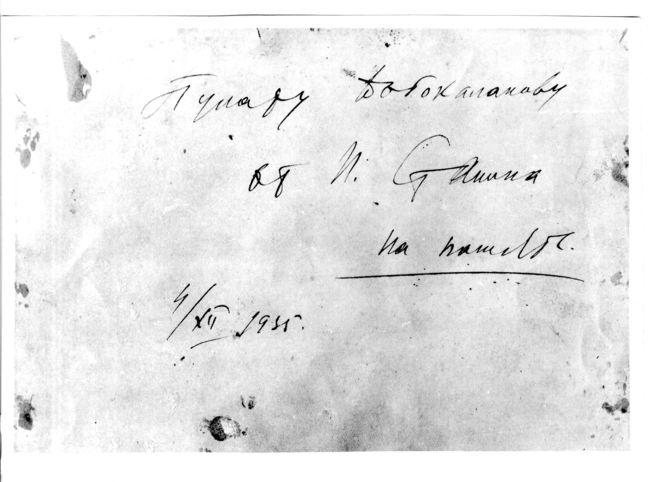 Пулату Бобокаланову
от И. Сталина
на память.
4/XII 1935.